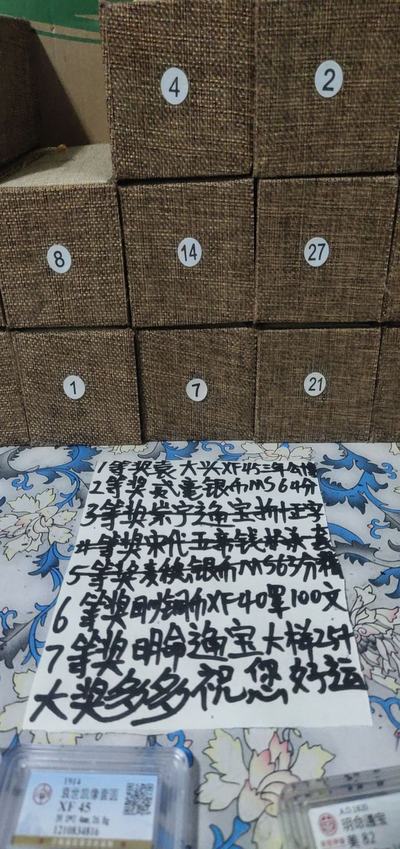 4
2
8
14
27
1
7
21
1等奖袁大头XF45三年公博
2等奖贰毫银币MS64分
3等奖崇宁通宝折十
4等奖宋代五帝钱
5等奖银币MS63分
6等奖铜币XF40 100文
7等奖明命通宝大样25
大奖多多祝您好运
1914
XF 45
1210834816
A.D.1820
明命通宝
美 82